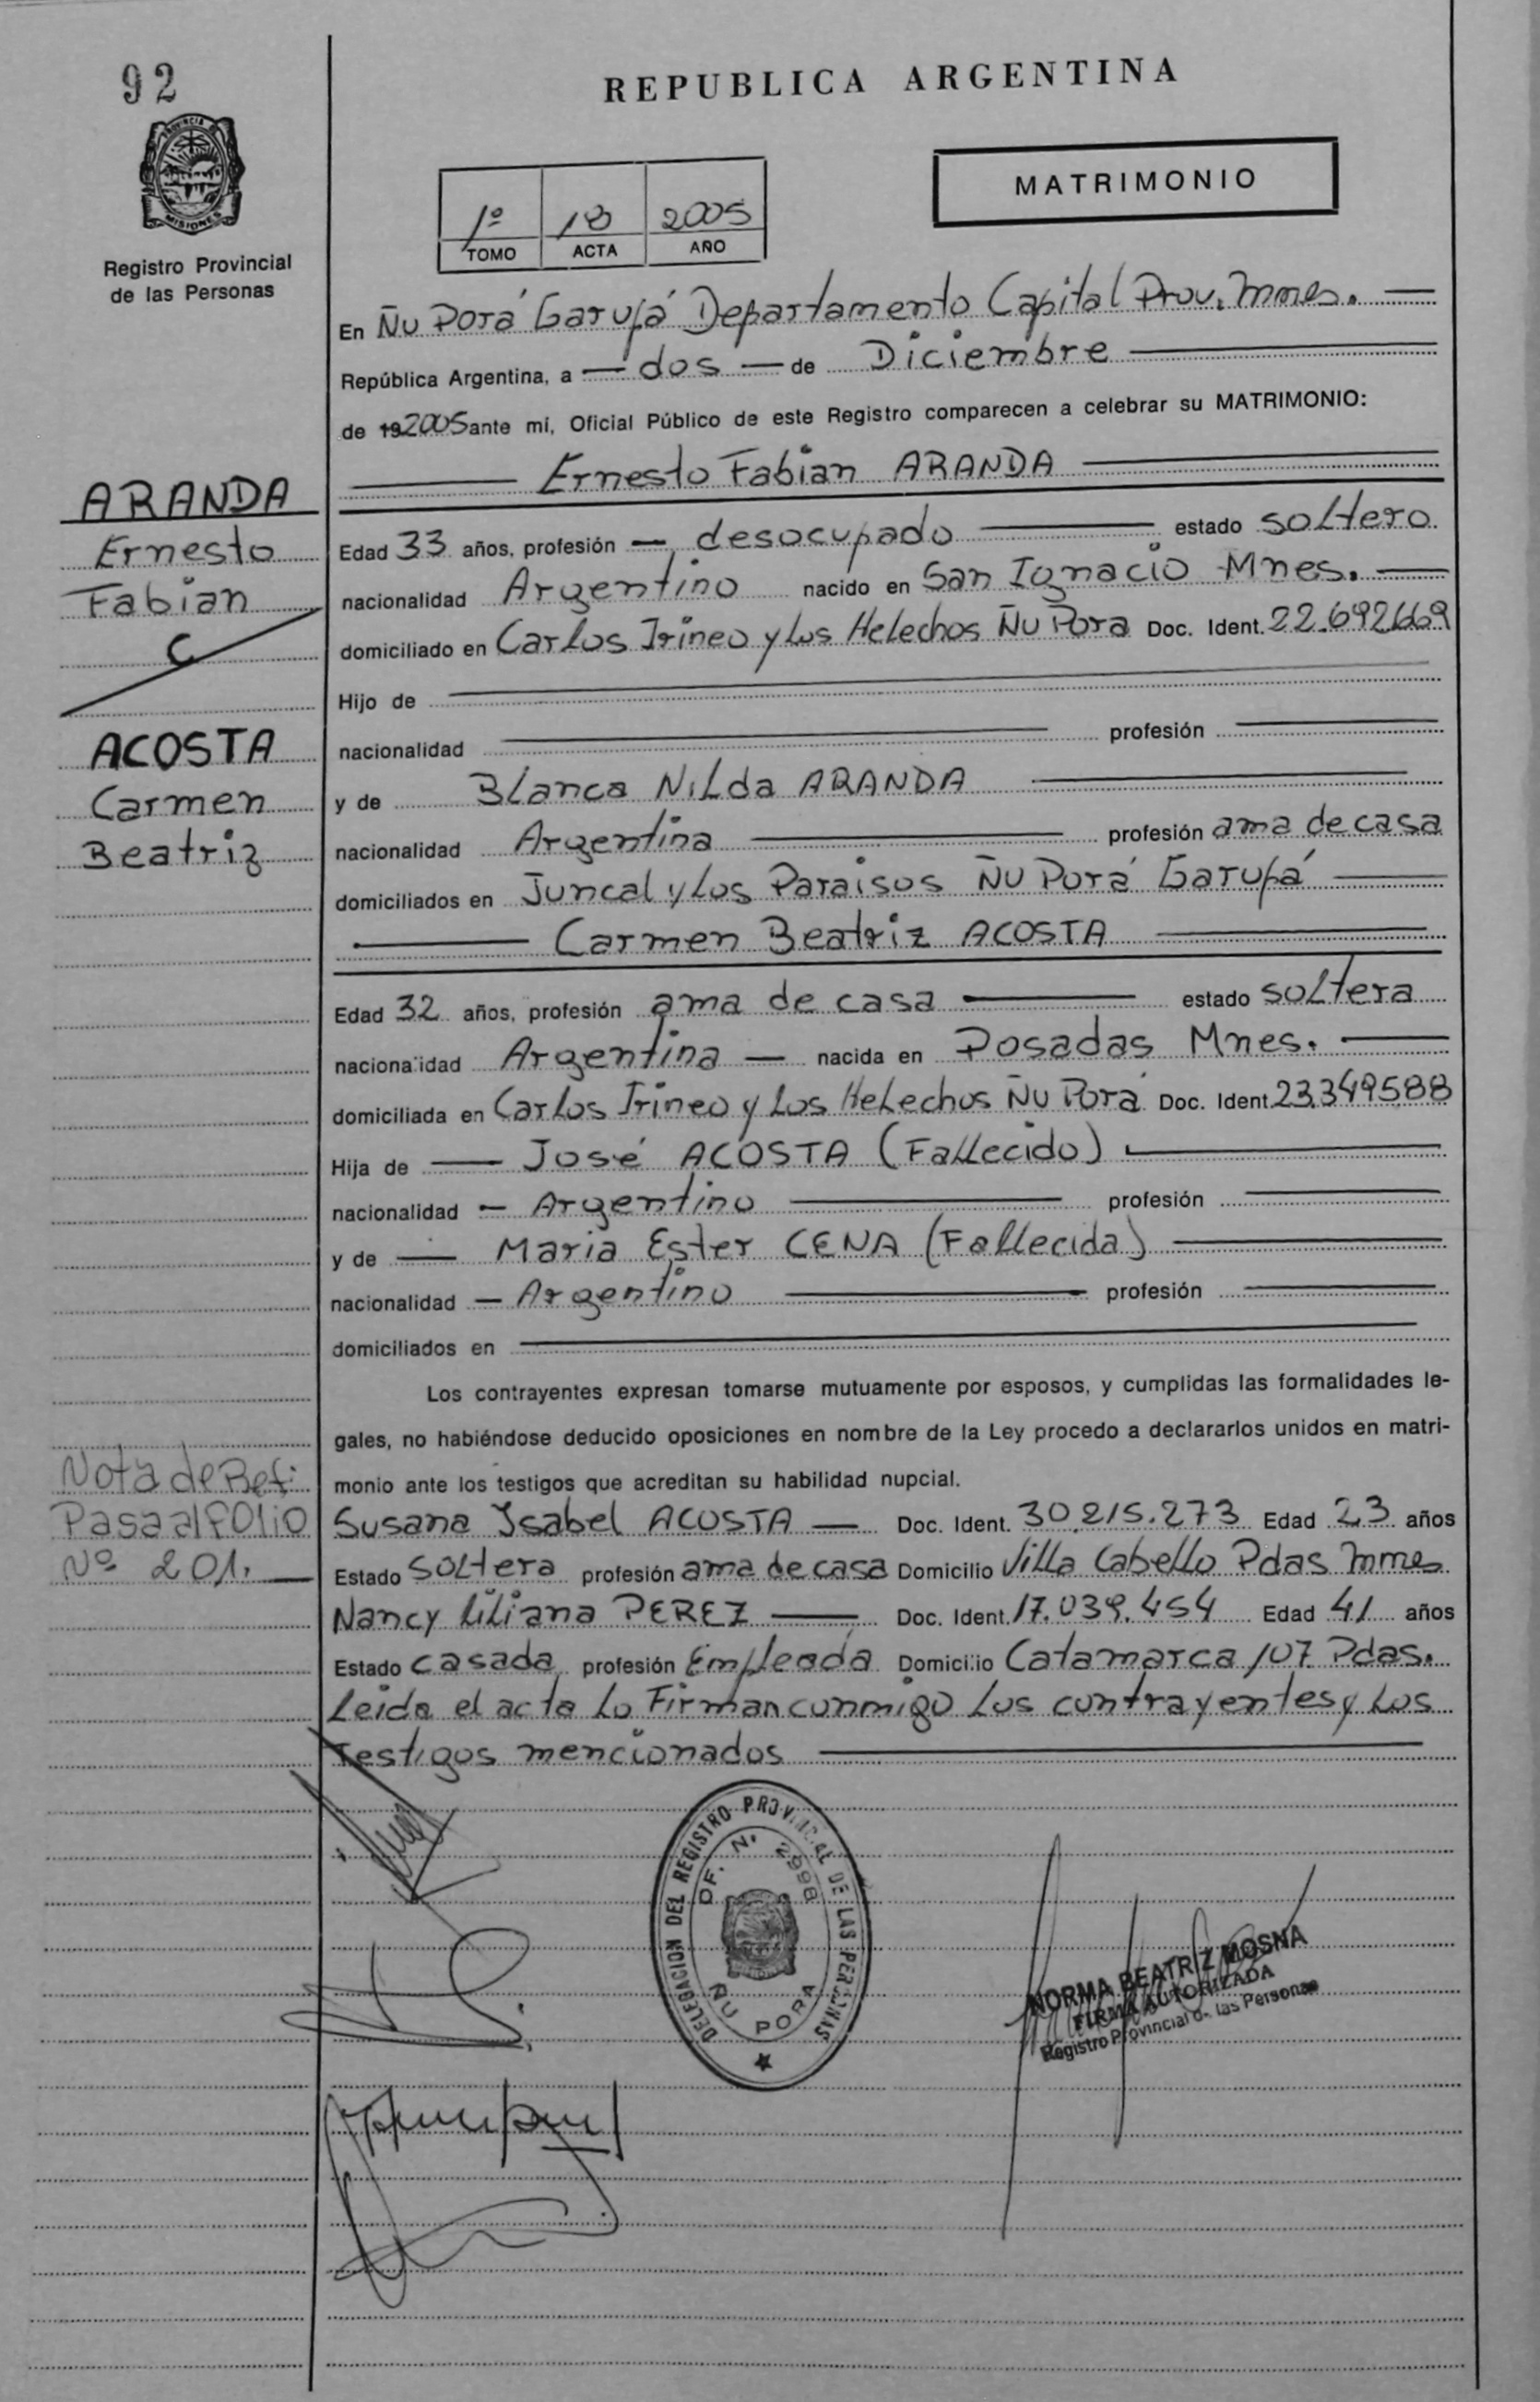 92
REPUBLICA ARGENTINA
MATRIMONIO
PROVINCIA D
MISIONES
Registro Provincial
de las Personas
1º 18 2005
TOMO ACTA AÑO
En Ñu Porá Garupá Departamento Capital Prov. Mnes.
República Argentina, a dos de Diciembre
de 192005 ante mí, Oficial Público de este Registro comparecen a celebrar su MATRIMONIO:
Ernesto Fabian ARANDA
ARANDA
Ernesto
Fabian
C
ACOSTA
Carmen
Beatriz
Edad 33 años, profesión desocupado estado soltero
nacionalidad Argentino nacido en San Ignacio Mnes.
domiciliado en Carlos Irineo y Los Helechos Ñu Pora Doc. Ident. 22.692669
Hijo de
nacionalidad profesión
y de Blanca Nilda ARANDA
nacionalidad Argentina profesión ama de casa
domiciliados en Juncal y Los Paraisos Ñu Porá Garupá
Carmen Beatriz ACOSTA
Edad 32 años, profesión ama de casa estado soltera
nacionalidad Argentina nacida en Posadas Mnes.
domiciliada en Carlos Irineo y Los Helechos Ñu Porá Doc. Ident. 23.349588
Hija de José ACOSTA (Fallecido)
nacionalidad Argentino profesión
y de Maria Ester CENA (Fallecida)
nacionalidad Argentino profesión
domiciliados en
Los contrayentes expresan tomarse mutuamente por esposos, y cumplidas las formalidades le-
gales, no habiéndose deducido oposiciones en nombre de la Ley procedo a declararlos unidos en matri-
monio ante los testigos que acreditan su habilidad nupcial.
Nota de Ref:
Pasa al FOlio
Nº 201.
Susana Isabel ACOSTA Doc. Ident. 30.215.273 Edad 23 años
Estado soltera profesión ama de casa Domicilio Villa Cabello Pdas Mnes
Nancy Liliana PEREZ Doc. Ident. 17.039.454 Edad 41 años
Estado casada profesión Empleada Domicilio Catamarca 107 Pdas.
Leida el acta Lo Firman conmigo Los contrayentes y Los
Testigos mencionados
DELEGACION DEL REGISTRO PROVINCIAL DE LAS PERSONAS
OF. N. 2998
ÑU PORA
NORMA BEATRIZ MOSNA
FIRMA AUTORIZADA
Registro Provincial d. las Personas